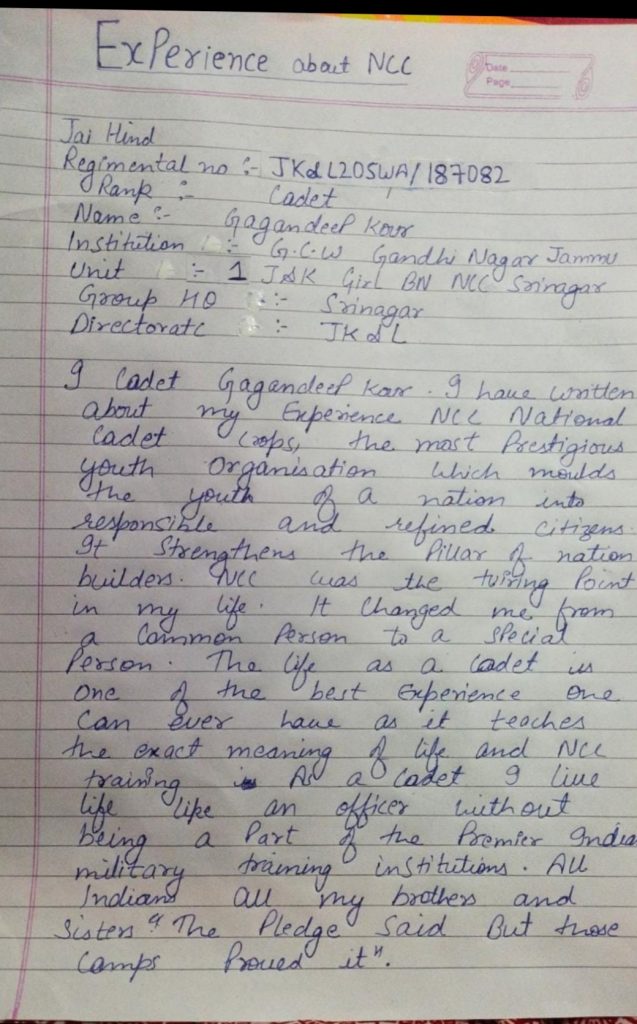 Experience about NCC
Date
Page
Jai Hind
Regimental no :- JK&L20SWA/187082
Rank :- Cadet
Name :- Gagandeep Kour
Institution :- G.C.W Gandhi Nagar Jammu
Unit :- 1 J&K Girl BN NCC Srinagar
Group HQ :- Srinagar
Directorate :- JK&L
I Cadet Gagandeep Kour. I have written
about my Experience NCC National
Cadet Crops, the most Prestigious
youth Organisation which moulds
the youth of a nation into
responsible and refined citizens.
It Strengthens the Pillar of nation
builders. NCC was the turing Point
in my life. It Changed me from
a Common Person to a Special
Person. The life as a Cadet is
one of the best Experience one
Can ever have as it teaches
the exact meaning of life and NCC
training As a Cadet I live
life like an officer without
being a Part of the Premier India
military training institutions. All
Indians all my brothers and
Sisters "The Pledge Said But those
Camps Proved it".